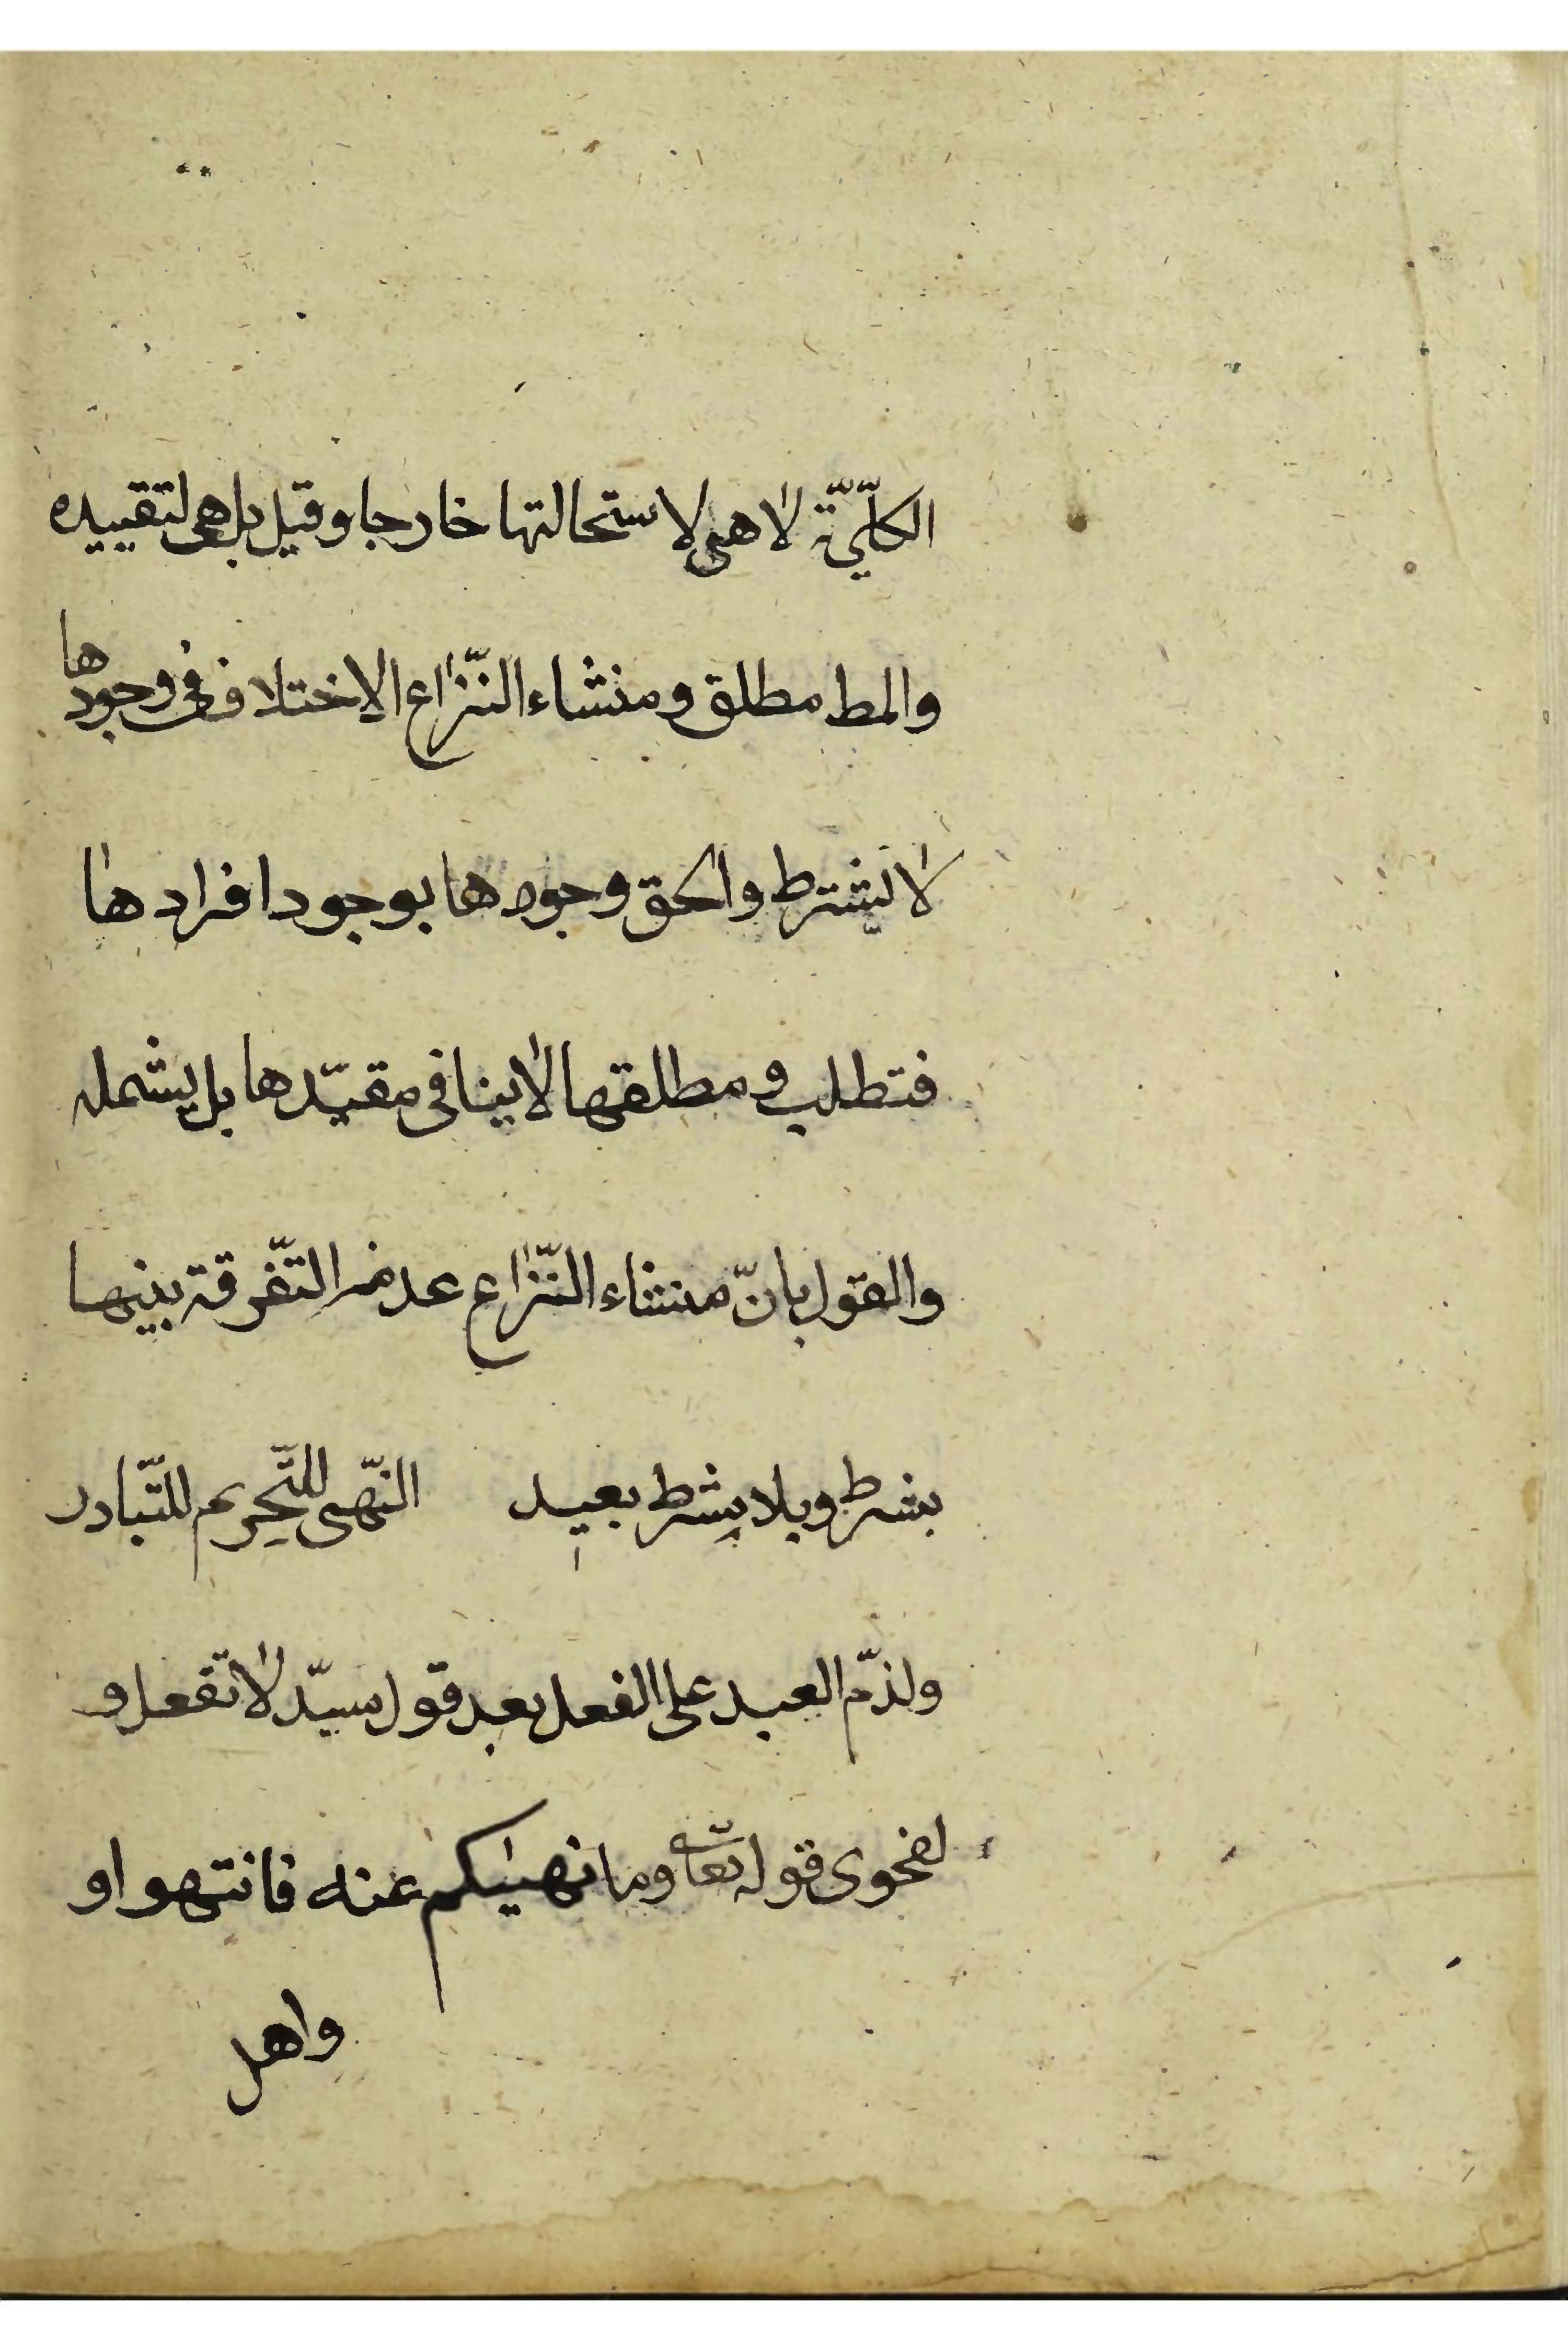 الكلّيّة لا هى لاستحالتها خارجا وقيل بل هى لتقييده
والمط مطلق ومنشاء النّزاع الاختلاف فى وجودها
لا بشرط والحق وجودها بوجود افرادها
فتطلب ومطلقها لا ينافى مقيّدها بل يشمله
والقول بانّ منشاء النّزاع عدم التّفرقة بينها
بشرط وبلا بشرط بعيد النّهى للتّحريم للتّبادر
ولذمّ العبد على الفعل بعد قول سيّد لا تفعل و
لفحوى قوله تعا وما نهيكم عنه فانتهوا و
واهل